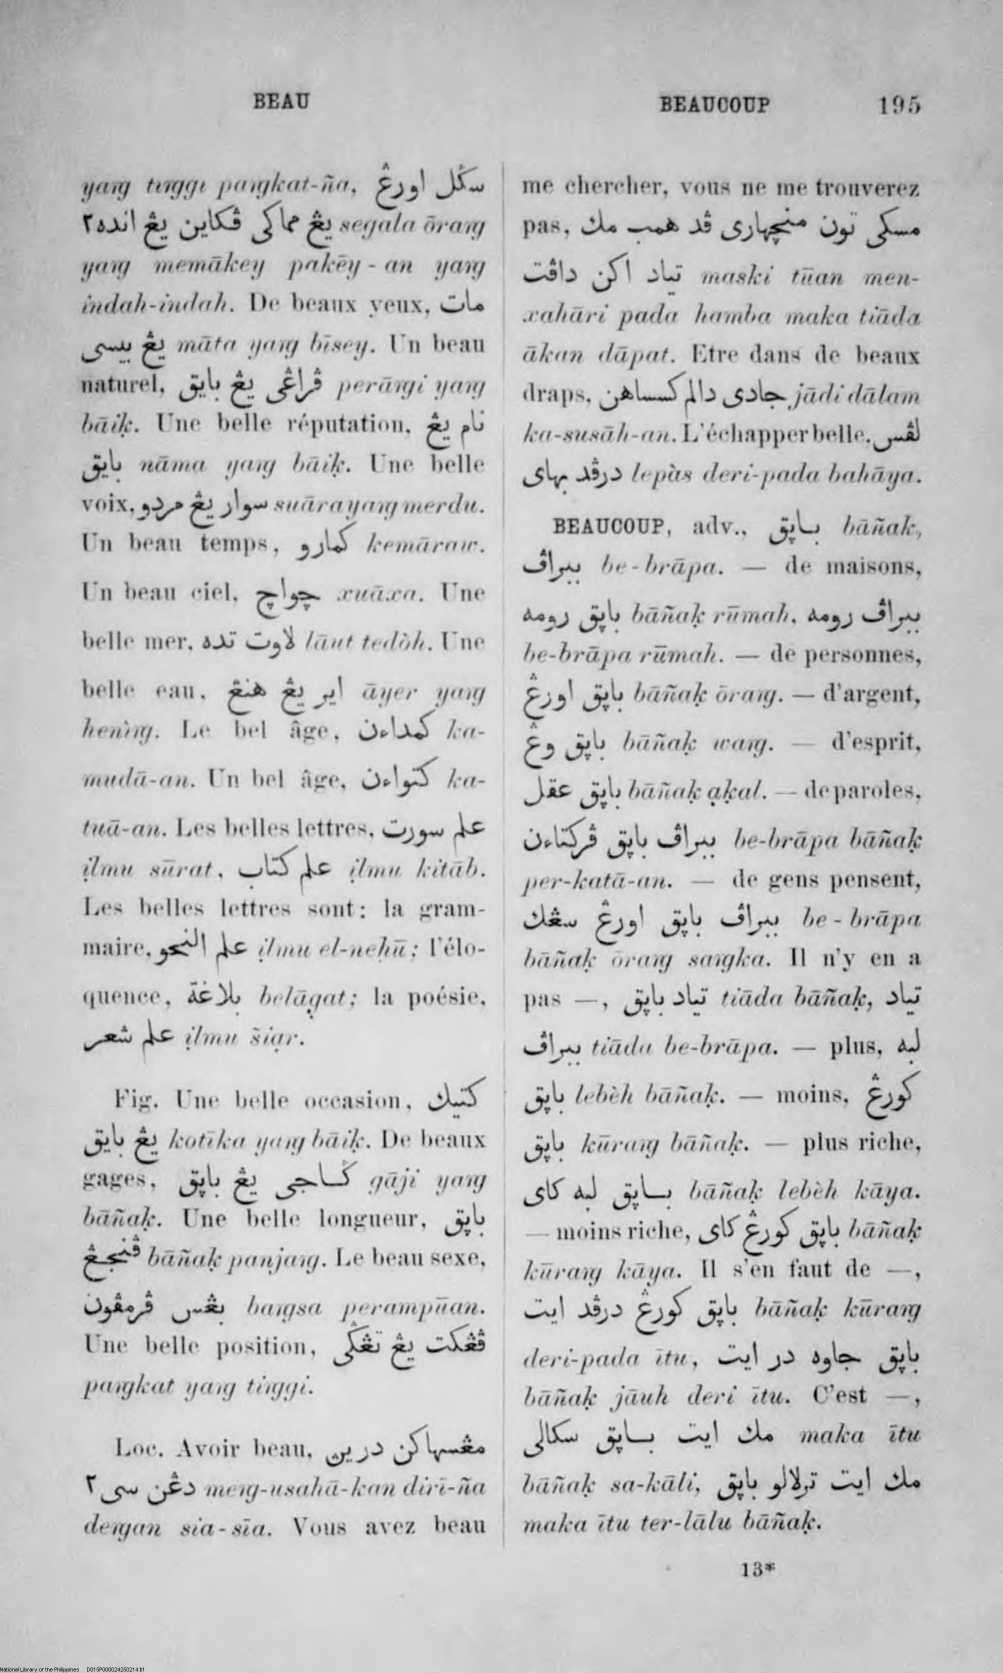 BEAU
BEAUCOUP 195
yang tinggi pangkat-ña, سکل اورڠ
يڠ مماکی ڤکاين يڠ انده٢ segala ōrang
yang memākey pakēy-an yang
indah-indah. De beaux yeux, مات
يڠ بيسی māta yang bīsey. Un beau
naturel, ڤراڠی يڠ بايق perāngi yang
bāiḳ. Une belle réputation, نام يڠ
بايق nāma yang bāiḳ. Une belle
voix, سوار يڠ مردو suāra yang merdu.
Un beau temps, کمارو kemāraw.
Un beau ciel, چواچ xuāxa. Une
belle mer, لاوت تده lāut tedòh. Une
belle eau, اير يڠ هنڠ āyer yang
hening. Le bel âge, کمداءن ka-
mudā-an. Un bel âge, کتواءن ka-
tuā-an. Les belles lettres, علم سورت
ịlmu sūrat, علم کتاب ịlmu kitāb.
Les belles lettres sont: la gram-
maire, علم النحو ịlmu el-neḥū; l'élo-
quence, بلاغة belāg̣at; la poésie,
علم شعر ịlmu šiạr.
Fig. Une belle occasion, کتيك
يڠ بايق kotīka yang bāiḳ. De beaux
gages, ݢاجی يڠ باپق gāji yang
bāñaḳ. Une belle longueur, باپق
ڤنجڠ bāñaḳ panjang. Le beau sexe,
بڠس ڤرمڤون bangsa perampūan.
Une belle position, ڤڠکت يڠ تڠکی
pangkat yang tinggi.
Loc. Avoir beau, مڠسهاکن درين
دڠن سی٢ meng-usahā-kan diri-ña
dengan sia-sīa. Vous avez beau
me chercher, vous ne me trouverez
pas, مسکی تون منچهاری ڤد همب مك
تياد اکن داڤت maski tūan men-
xahāri pada hamba maka tiāda
ākan dāpat. Etre dans de beaux
draps, جادی دالم کسساهن jādi dālam
ka-susāh-an. L'échapper belle, لڤس
درڤد بهای lepàs deri-pada bahāya.
BEAUCOUP, adv., باپق bāñaḳ,
ببراڤ be-brāpa. — de maisons,
باپق رومه bāñaḳ rūmah, ببراڤ رومه
be-brāpa rūmah. — de personnes,
باپق اورڠ bāñaḳ ōrang. — d'argent,
باپق وڠ bāñaḳ wang. — d'esprit,
باپق عقل bāñaḳ ạḳal. — de paroles,
ببراڤ باپق ڤرکتاءن be-brāpa bāñaḳ
per-katā-an. — de gens pensent,
ببراڤ باپق اورڠ سڠك be-brāpa
bāñaḳ ōrang sangka. Il n'y en a
pas —, تياد باپق tiāda bāñaḳ, تياد
ببراڤ tiāda be-brāpa. — plus, لبه
باپق lebèh bāñaḳ. — moins, کورڠ
باپق kūrang bāñaḳ. — plus riche,
باپق لبه کای bāñaḳ lebèh kāya.
— moins riche, باپق کورڠ کای bāñaḳ
kūrang kāya. Il s'en faut de —,
باپق کورڠ درڤد ايت bāñaḳ kūrang
deri-pada ītu, باپق جاوه در ايت
bāñaḳ jāuh deri ītu. C'est —,
مك ايت باپق سکالی maka ītu
bāñaḳ sa-kāli, مك ايت ترلالو باپق
maka ītu ter-lālu bāñaḳ.
13*
National Library of the Philippines D015P000024260214.tif